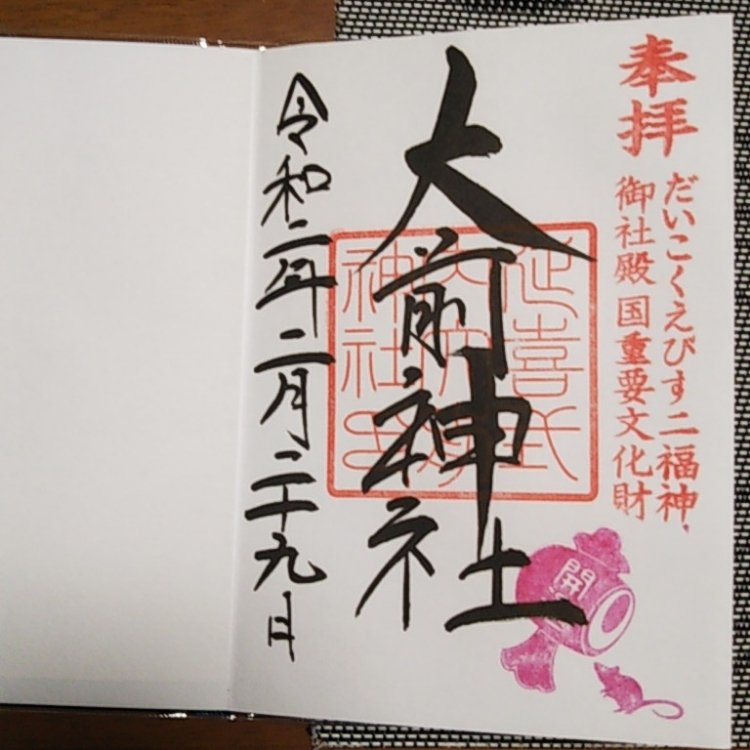 奉拝
だいこくえびす二福神・
御社殿国重要文化財
大前神社
延喜式内大前神社
開運
令和二年二月二十九日